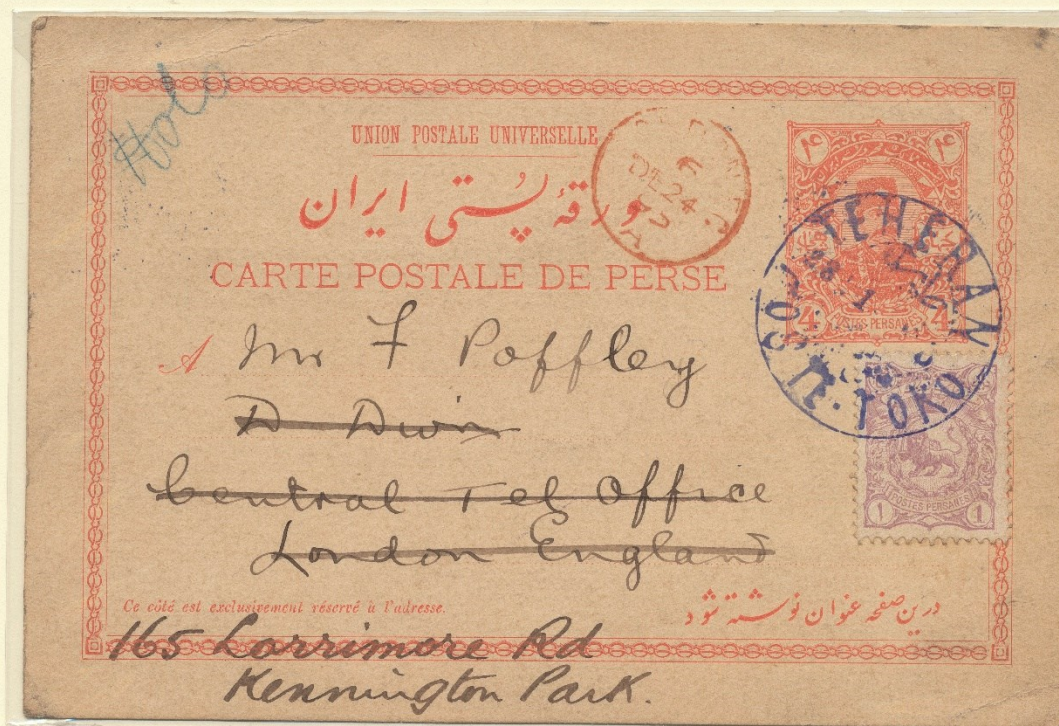 Holo
UNION POSTALE UNIVERSELLE
ورقهٔ پستی ایران
CARTE POSTALE DE PERSE
6
DE 24
97
۴ ۴
TEHERAN
POSTES PERSANES
4 4
A Mr F Poffley
D Divin
Central Tel Office
London England
POSTES PERSANES
1 1
Ce côté est exclusivement réservé à l'adresse.
درین صفحه عنوان نوشته شود
165 Lorrimore Rd
Kennington Park.